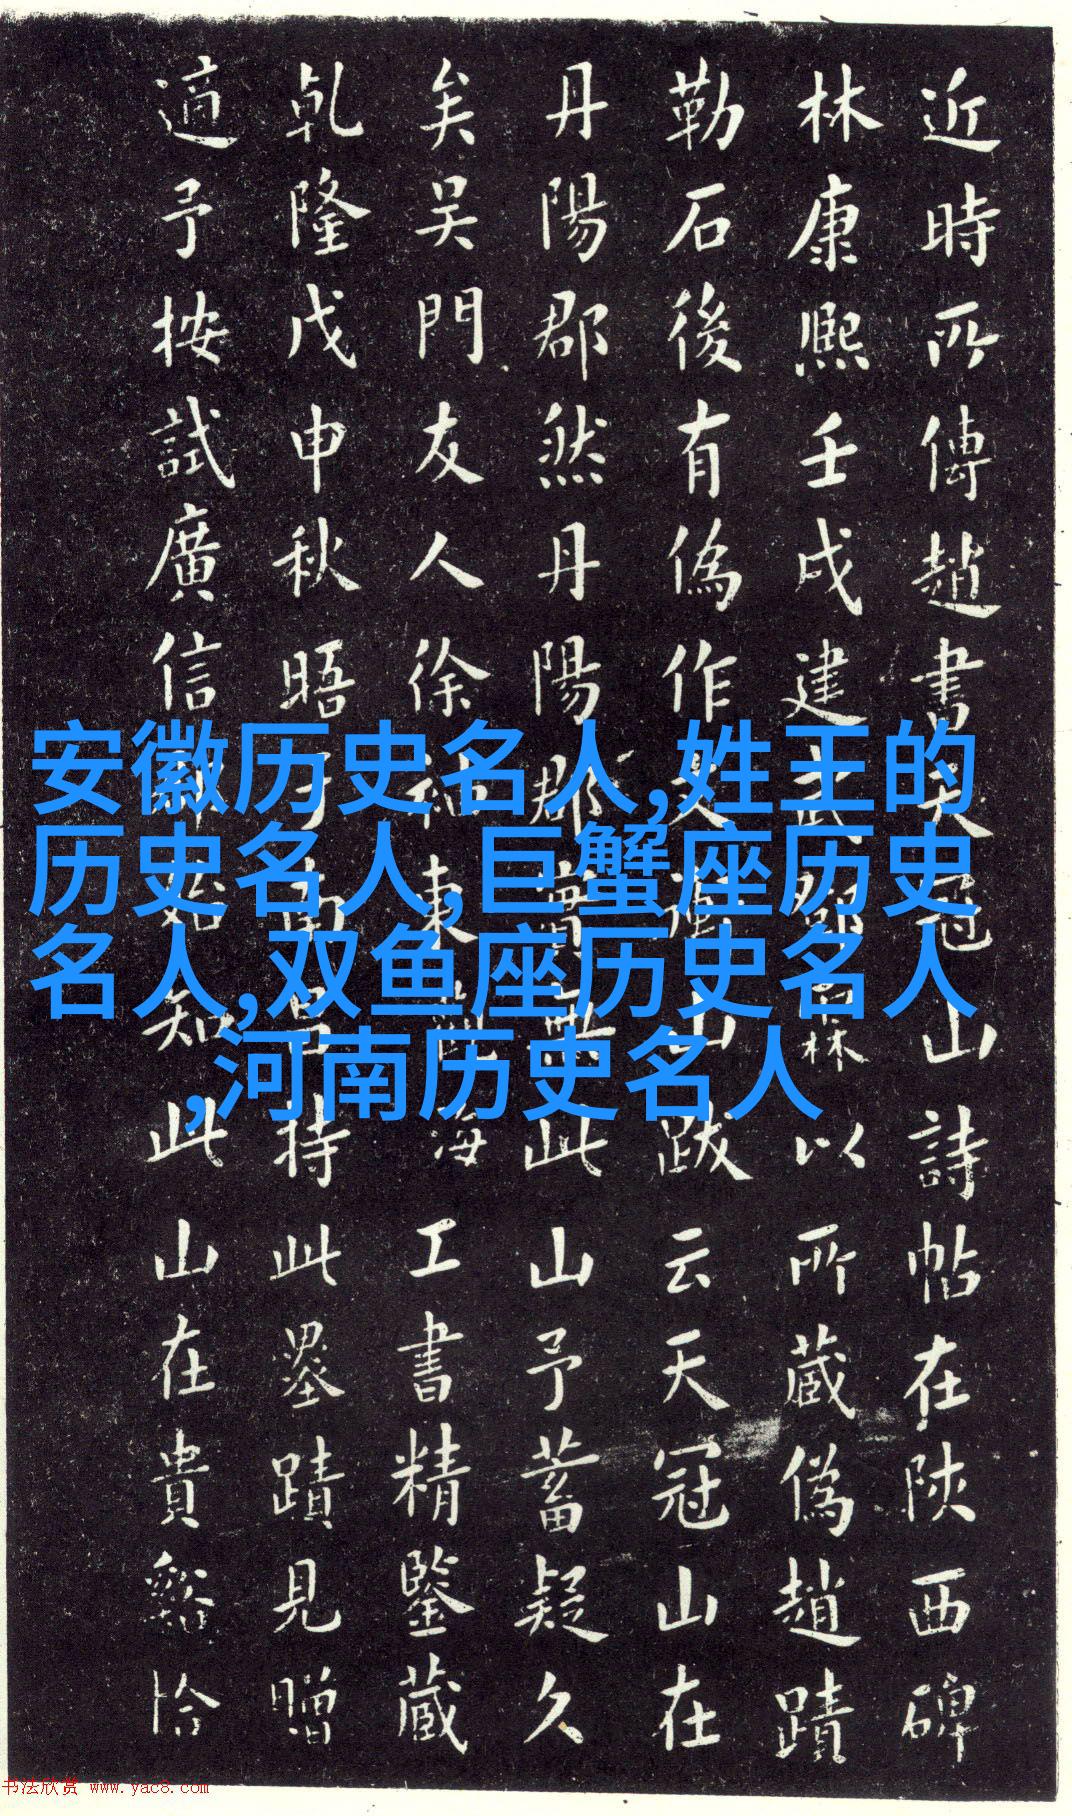 近時所傳趙書天冠山詩帖在陝西碑
林康熙壬戌建武霖以所藏偽趙蹟
勒石後有偽作文衡山跋云天冠山在
丹陽郡然丹陽郡實無此山予蓄疑久
矣吳門友人徐東觀海工書精鑒藏
乾隆戊申秋晤于南昌持此墨蹟見贈
適予按試廣信郡始知此山在貴谿恰
安徽历史名人,姓王的
历史名人,巨蟹座历史
名人,双鱼座历史名人
,河南历史名人
书法欣赏 www.yac8.com